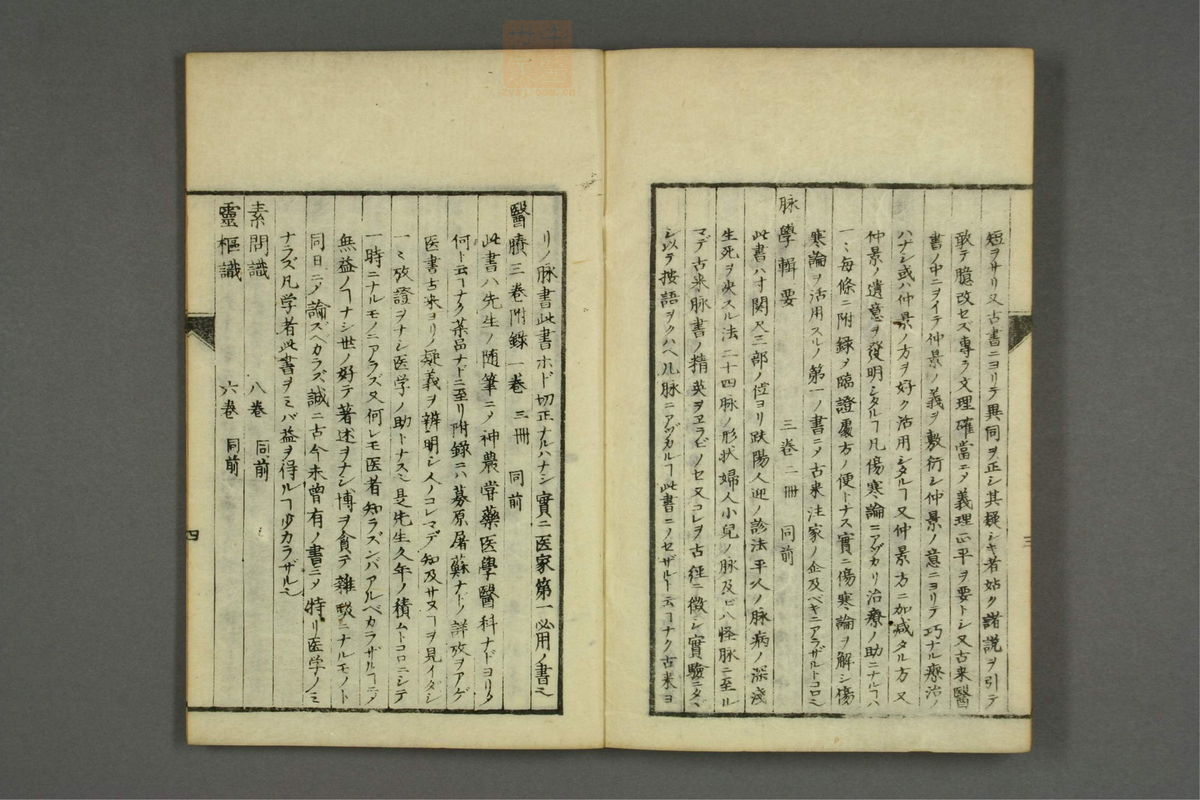 短ヲサリ又古書ニヨリテ異同ヲ正シ其疑シキ者姑ク諸説ヲ引テ
敢テ臆改セズ專ラ文理確當ニメ義理正平ヲ要トシ又古来醫
書ノ中ニヲイテ仲景ノ義ヲ敷衍シ仲景ノ意ニヨリテ巧ナル療治ノ
ハナシ或ハ仲景ノ方ヲ好ク活用シタルヿ又仲景方ニ加减タル方又
仲景ノ遺意ヲ發明シタルヿ凡傷寒論ニアヅカリ治療ノ助ニナルヿハ
一〻每條ニ附録メ臨證處方ノ便トナス實ニ傷寒論ヲ解シ傷
寒論ヲ活用スルノ第一ノ書ニメ古来注家ノ企及ベキニアラザルトコロ也
脉學輯要 三巻二冊 同前
此書ハ寸関尺三部ノ位ヨリ趺陽人迎ノ診法平人ノ脉病ノ深淺
生死ヲ决スル法二十四脉ノ形状婦人小兒ノ脉及ビ八怪脉ニ至ル
マデ古来脉書ノ精英ヲヱラビノセ又コレヲ古經ニ徴シ實驗ニタヾ
シ以テ按語ヲクハヘ凡脉ニアヅカルヿ此書ニノセザルト云ヿナク古来ヨ
三
リノ脉書此書ホド切正ナルハナシ實ニ医家第一必用ノ書也
醫賸三巻附録一巻 三冊 同前
此書ハ先生ノ随筆ニメ神農嘗藥医學醫科ナドヨリ
何ト云ヿナク薬品ナドニ至リ附録ニハ募原屠蘇ナドノ詳攷ヲアゲ
医書古来ヨリノ疑義ヲ辨明シ人ノコレマデ知及サヌヿヲ見イダシ
一〻攷證ヲナシ医学ノ助トナス也是先生久年ノ積ムトコロニシテ
一時ニナルモノニアラズ又何レモ医者知ラズンバアルベカラザルヿニメ
無益ノヿナシ世ノ好テ著述ヲナシ博ヲ貪テ雜駁ニナルモノト
同日ニメ論ズベカラズ誠ニ古今未曾有ノ書ニメ特リ医学ノミ
ナラズ凡学者此書ヲミバ益ヲ得ルヿ少カラザル也
素問識 八巻 同前
靈樞識 六巻 同前
四